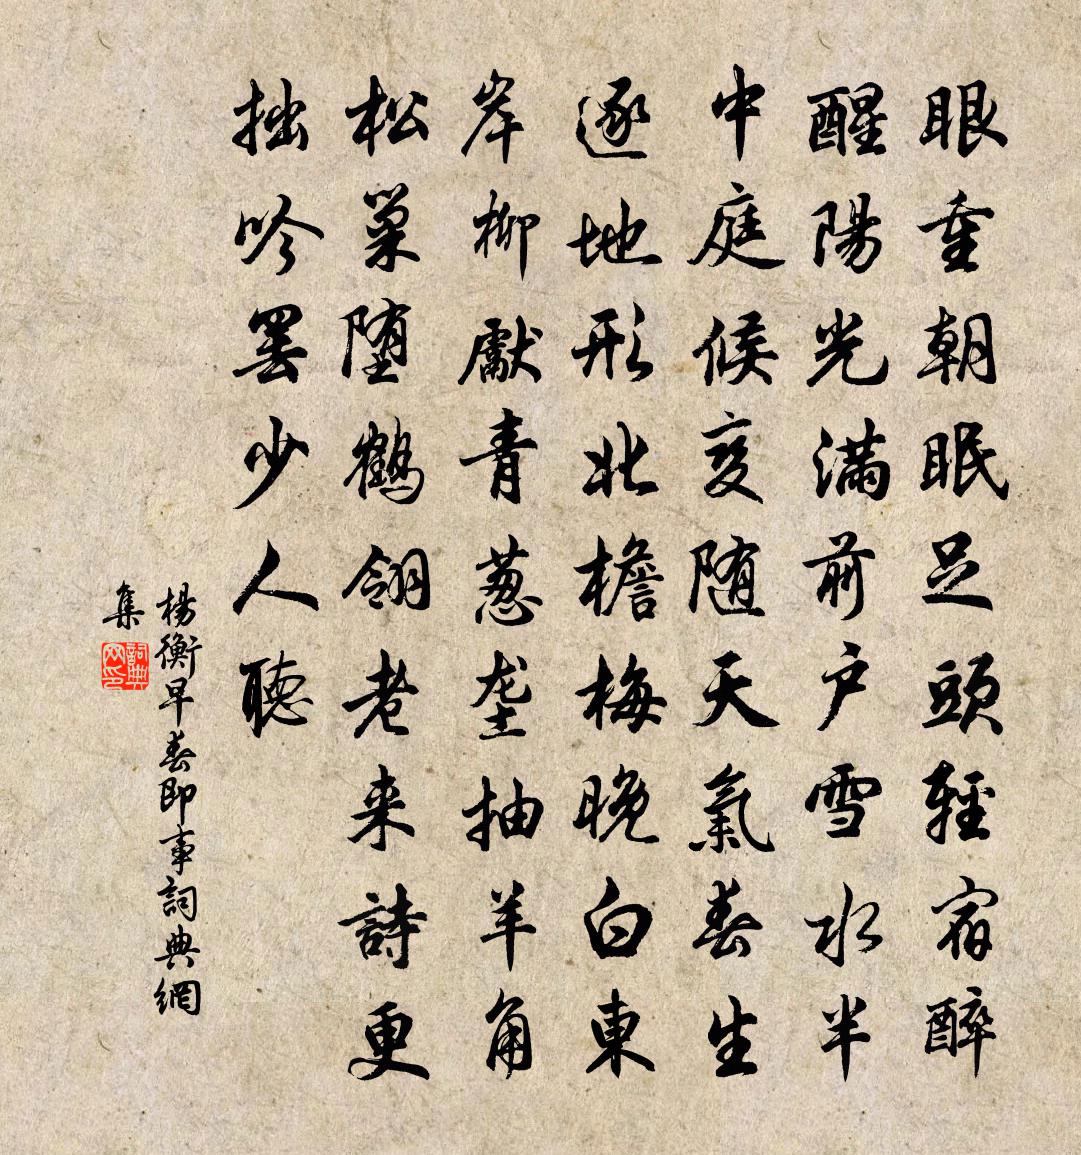 眼重朝眠足頭輕宿醉
醒陽光滿前户雪水半
中庭候变随天氣春生
逐地形北檐梅晚白東
岸柳獻青葱垄抽羊角
松巢堕鶴翎老来詩更
拙吟罢少人聽
楊衡早春即事詞典網
集
詞典网印